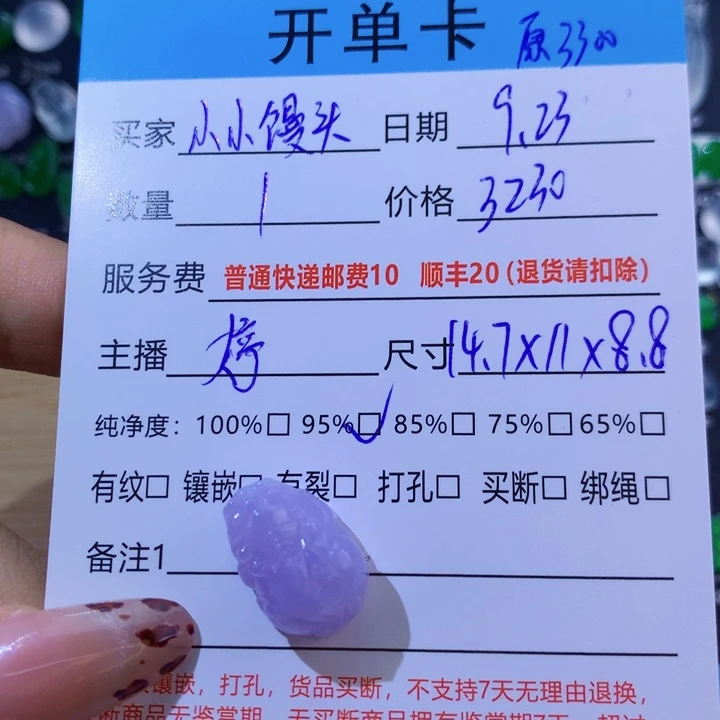 开单卡 原3300
买家 小小馒头 日期 9.23
数量 1 价格 3230
服务费 普通快递邮费10 顺丰20(退货请扣除)
主播 婷 尺寸 14.7x11x8.8
纯净度：100%□ 95%☑ 85%□ 75%□ 65%□
有纹□ 镶嵌□ 有裂□ 打孔□ 买断□ 绑绳□
备注1
镶嵌，打孔，货品买断，不支持7天无理由退换，
断商品无鉴赏期